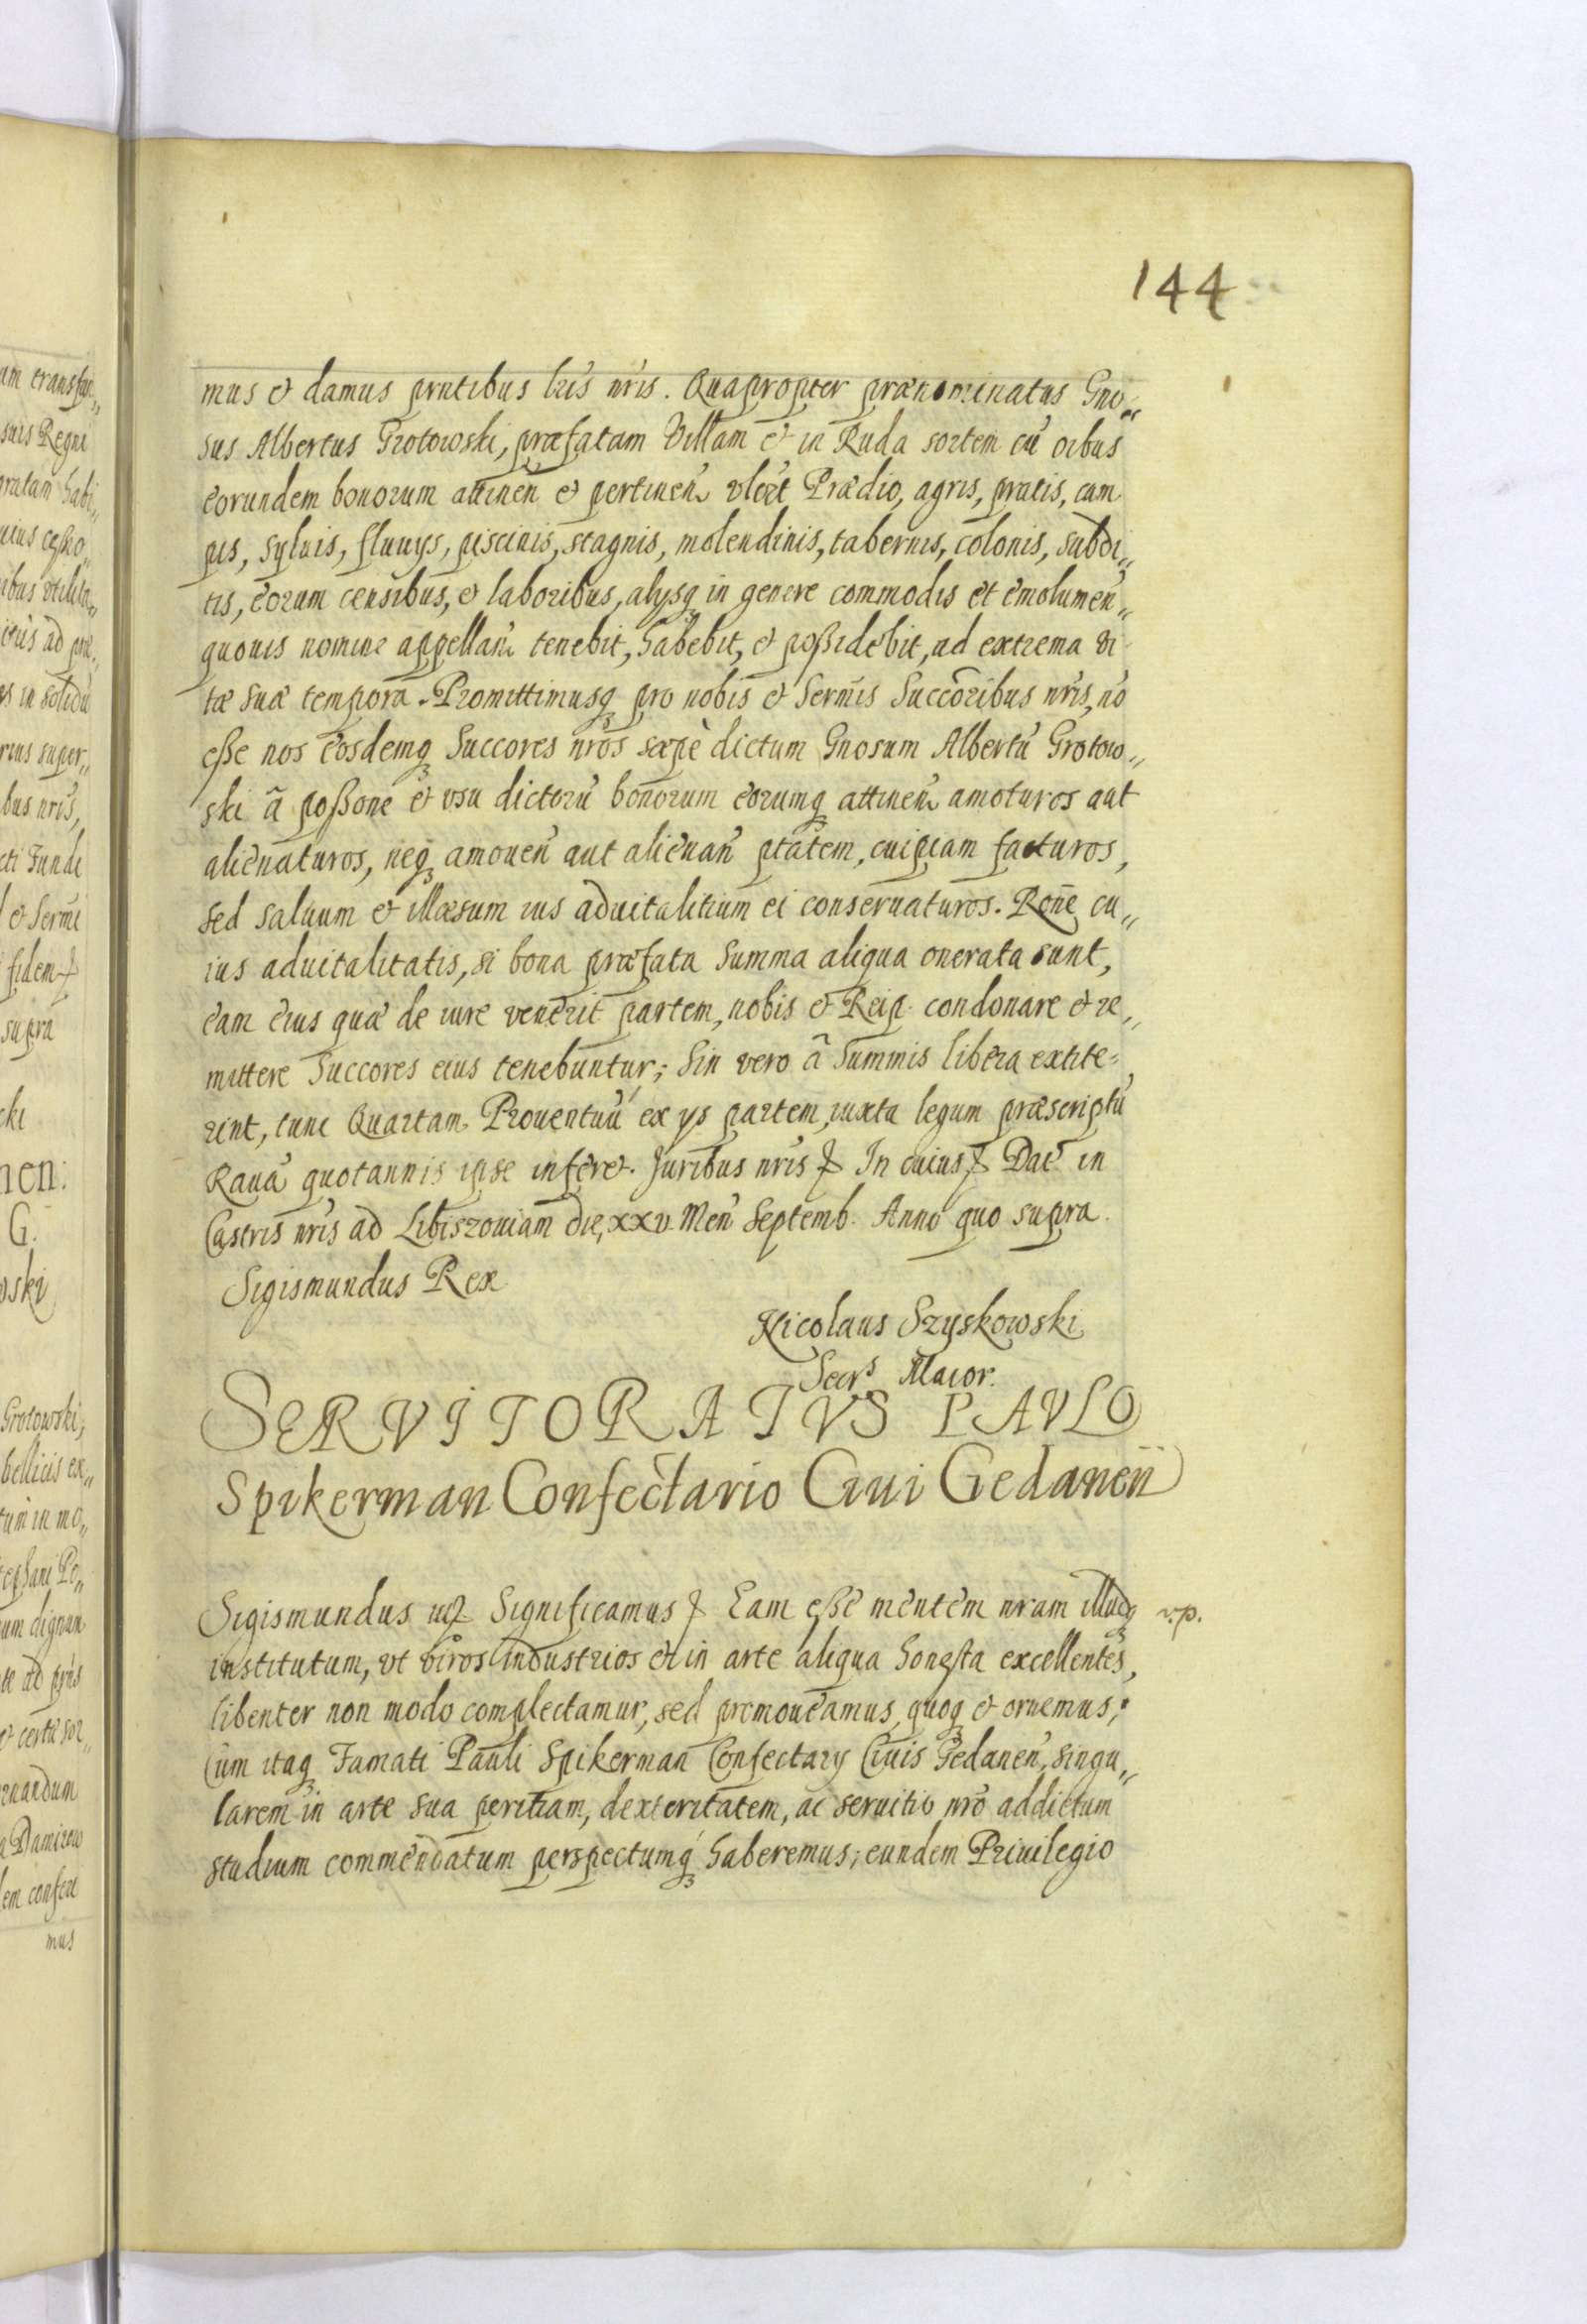 144
mus et damus prntibus lris nris. Quapropter prænominatus Gno„
sus Albertus Grotowski, præfatam Villam et in Ruda sortem cū oībus
eorundem bonorum attinen̄ et pertinen̄ vlt Prædio, agris, pratis, cam
pis, syluis, fluuys, piscinis, stagnis, molendinis, tabernis, colonis, subdi„
tis, eorum censibus, et laboribus, alysq in genere commodis et emolumen̄„
quouis nomine appellan̄ tenebit, habebit, et poßidebit, ad extrema vi
tæ suæ tempora. Promittimusq pro nobis et Sermis Succoribus nris, nō
eße nos eosdemq Succores nros sæpè dictum Gnosum Albertū Grotow„
ski â poßone et vsu dictorū bonorum eorumq attinen̄ amoturos aut
alienaturos, neq amouen̄ aut alienan̄ ptatem, cuipiam facturos,
sed saluum et illæsum ius aduitalitium ei conseruaturos. Rone cu„
ius aduitalitatis, si bona præfata Summa aliqua onerata sunt,
eam eius quæ de iure venerit partem, nobis et Reip. condonare et re„
mittere Succores eius tenebuntur; Sin vero â Summis libera extite=
rint, tunc Quartam Prouentuū ex ys partem, iuxta legum præscriptū
Rauā quotannis ipse inferet. Juribus nris & In cuius & Dat̄ in
Castris nris ad Libiszouiam die, xxv. Men̄ Septemb. Anno quo supra.
Sigismundus Rex
Nicolaus Szyskowski
Secrs Maior.
SERVITORATVS PAVLO
Spikerman Confectario Ciui Gedanen̄
Sigismundus Significamus & Eam eße mentem nram illudq
v.p.
institutum, vt viros industrios et in arte aliqua honesta excellentes,
libenter non modo complectamur, sed promoueamus quoq et ornemus;
Cum itaq Famati Pauli Spikerman Confectary Ciuis Gedanen̄, singu„
larem in arte sua peritiam, dexteritatem, ac seruitio nro addictum
studium commendatum perspectumq haberemus; eundem Priuilegio